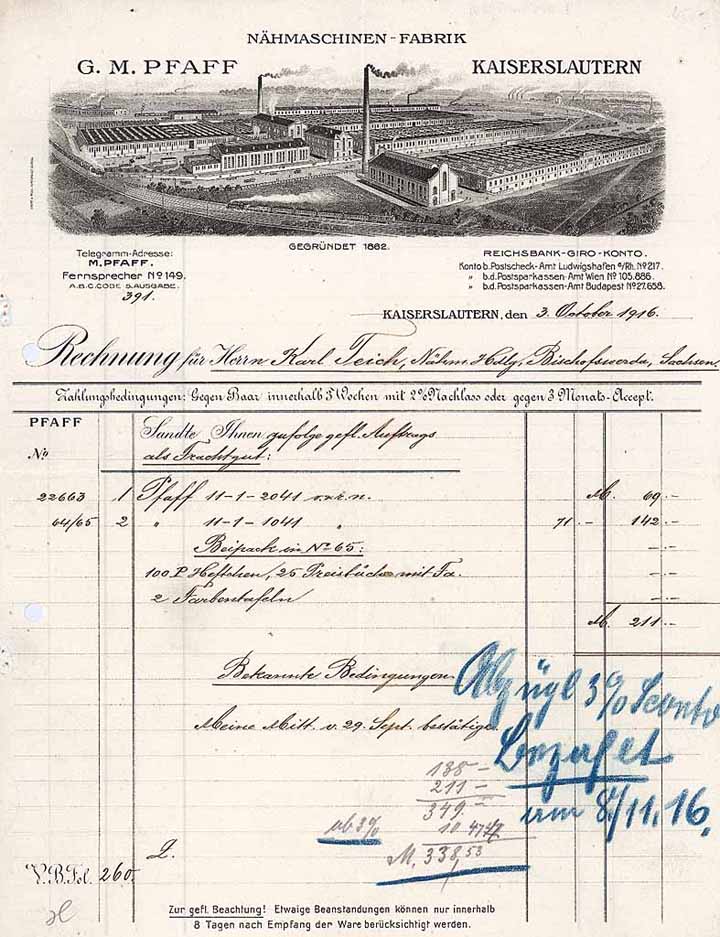 NÄHMASCHINEN-FABRIK
G. M. PFAFF KAISERSLAUTERN
GEGRÜNDET 1862.
Telegramm-Adresse:
M. PFAFF.
Fernsprecher No 149.
A.B.C. CODE 5. AUSGABE.
391.
REICHSBANK-GIRO-KONTO.
Konto b. Postscheck-Amt Ludwigshafen a/Rh. No 217.
" b.d. Postsparkassen-Amt Wien No 105.886.
" b.d. Postsparkassen-Amt Budapest No 27.658.
KAISERSLAUTERN, den 3. October 1916.
Rechnung für Herrn Karl Teich, Nähm. Hdlg, Bischofswerda, Sachsen.
Zahlungsbedingungen: Gegen Baar innerhalb 5 Wochen mit 2% Nachlass oder gegen 3 Monats-Accept.
PFAFF
No
Sandte Ihnen zufolge gefl. Auftrags
als Frachtgut:
22663 1 Pfaff 11-1-2041 M. 69.-
64/65 2 " 11-1-1041 " 71.- 142.-
Beipack in No 65: -.-
100 P. Heftchen, 25 Preisbüch. mit Fa. -.-
2 Farbentafeln -.-
M. 211.-
Bekannte Bedingungen.
Meine Mitt. v. 29. Sept. bestätige.
Abzügl 3% Sconto
bezahlt
am 8/11.16.
138 -
211 -
349.-
ab 3% 10.47
M. 338,53
V.B. Fol. 260.
Zur gefl. Beachtung! Etwaige Beanstandungen können nur innerhalb
8 Tagen nach Empfang der Ware berücksichtigt werden.